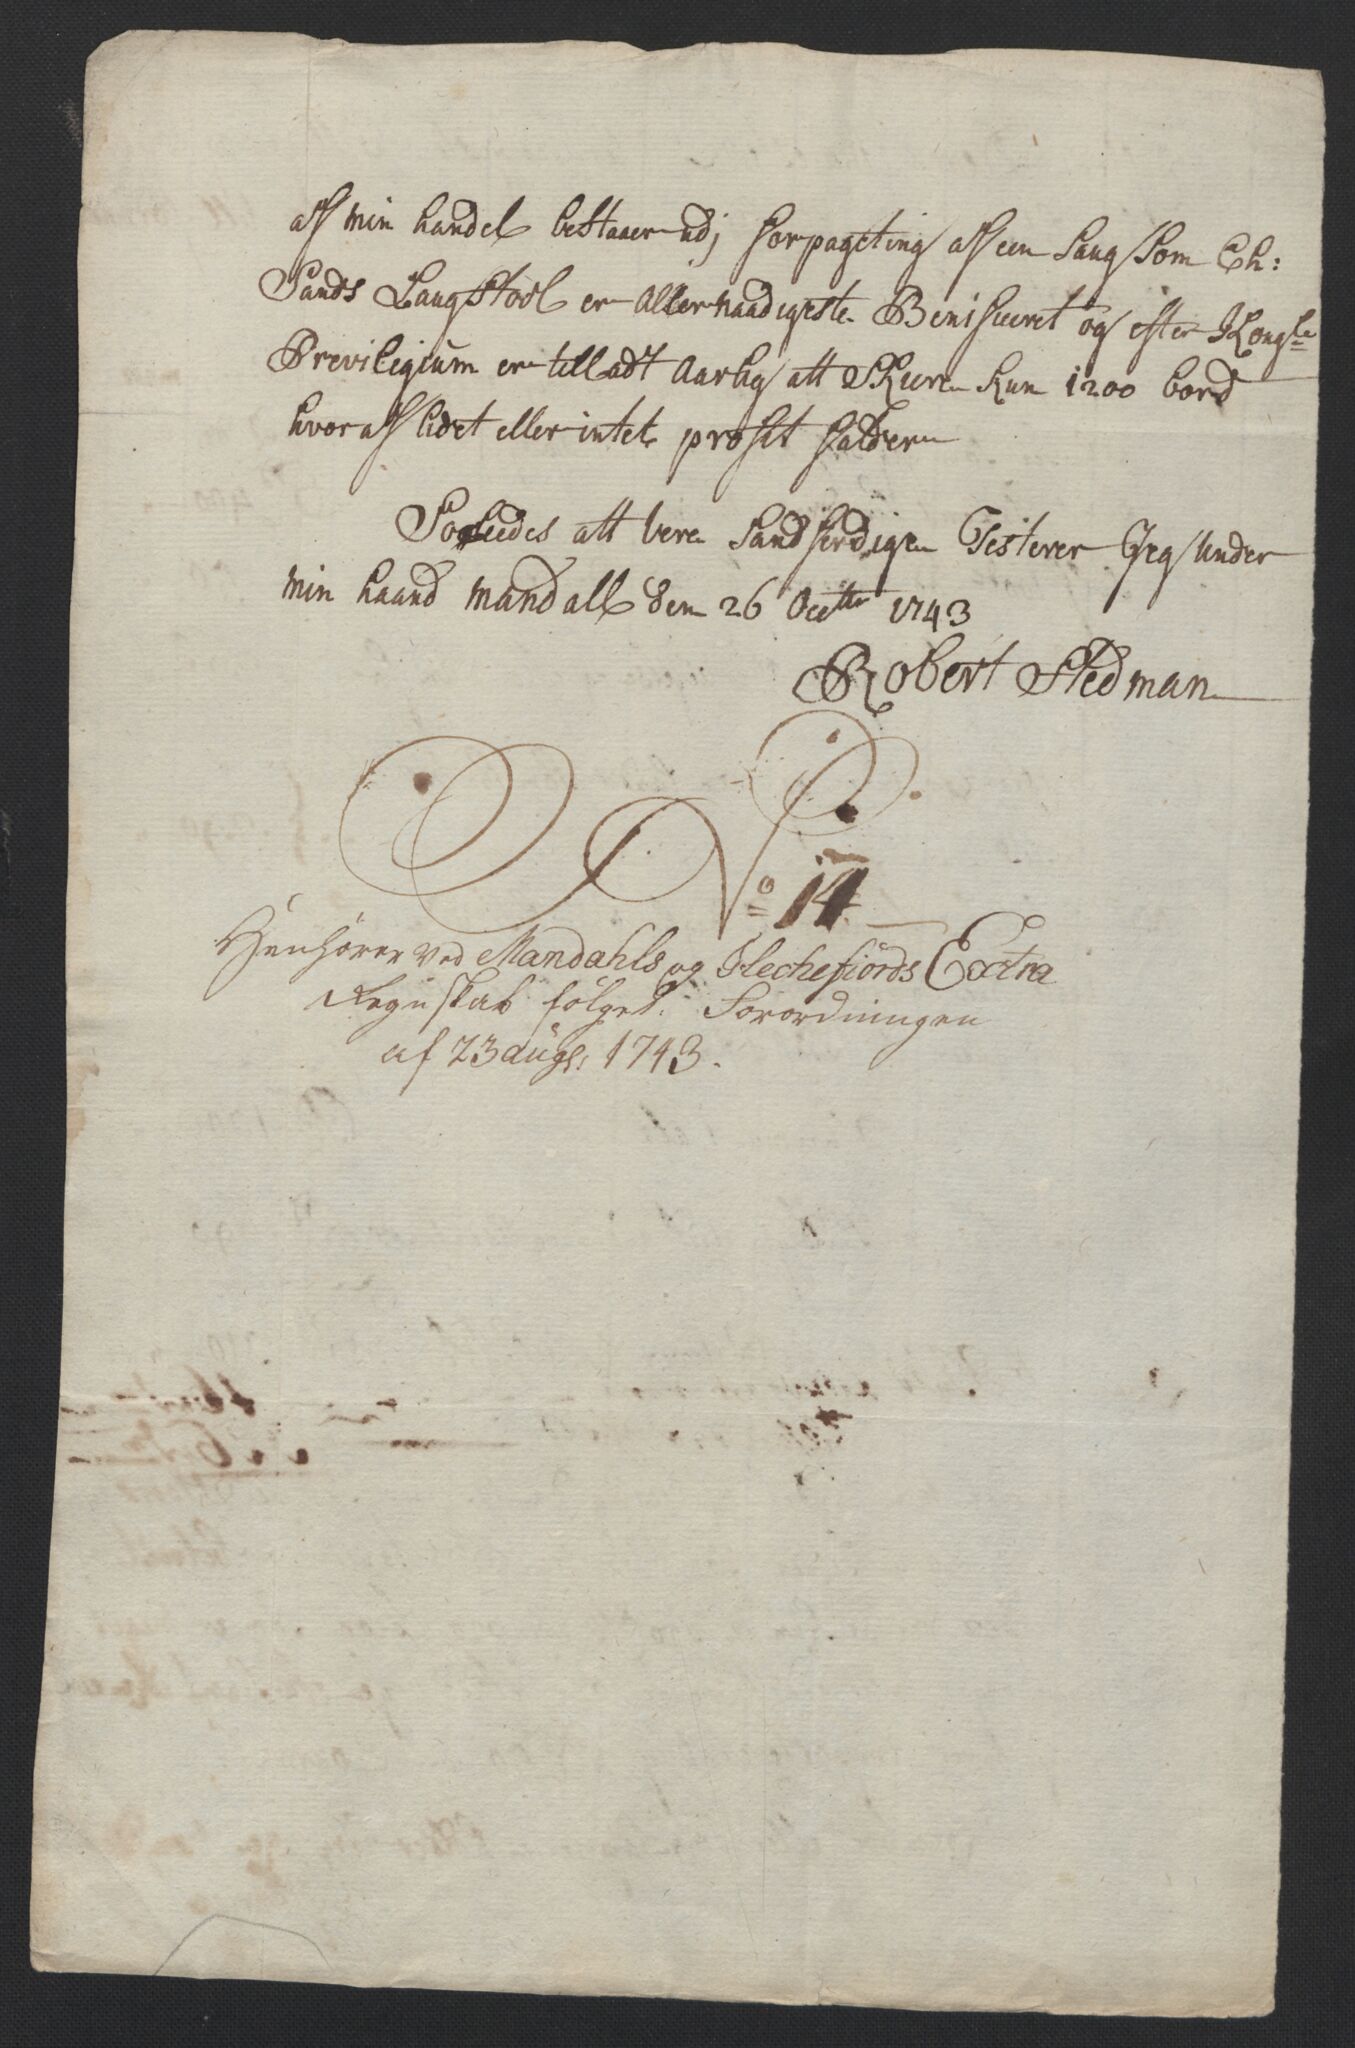 af min handel bestaaer udj forpagting af een Saug Som Ch:
Sands Laugstoel er allernaadigste Benificeret og efter Kongle
Previlegium er tilladt Aarlig att Skiere kun 1200 bord
hvoraf lidet eller intet profit falder
Saaledes att vere Sandferdigen Testerer Jeg under
min haand Mandall den 26 Octtr 1743
Robert Stedman
No 14
Henhører ved Mandahls og Flechefiords Extra
Regnskab følget. Forordningen
af 23 augs: 1743.